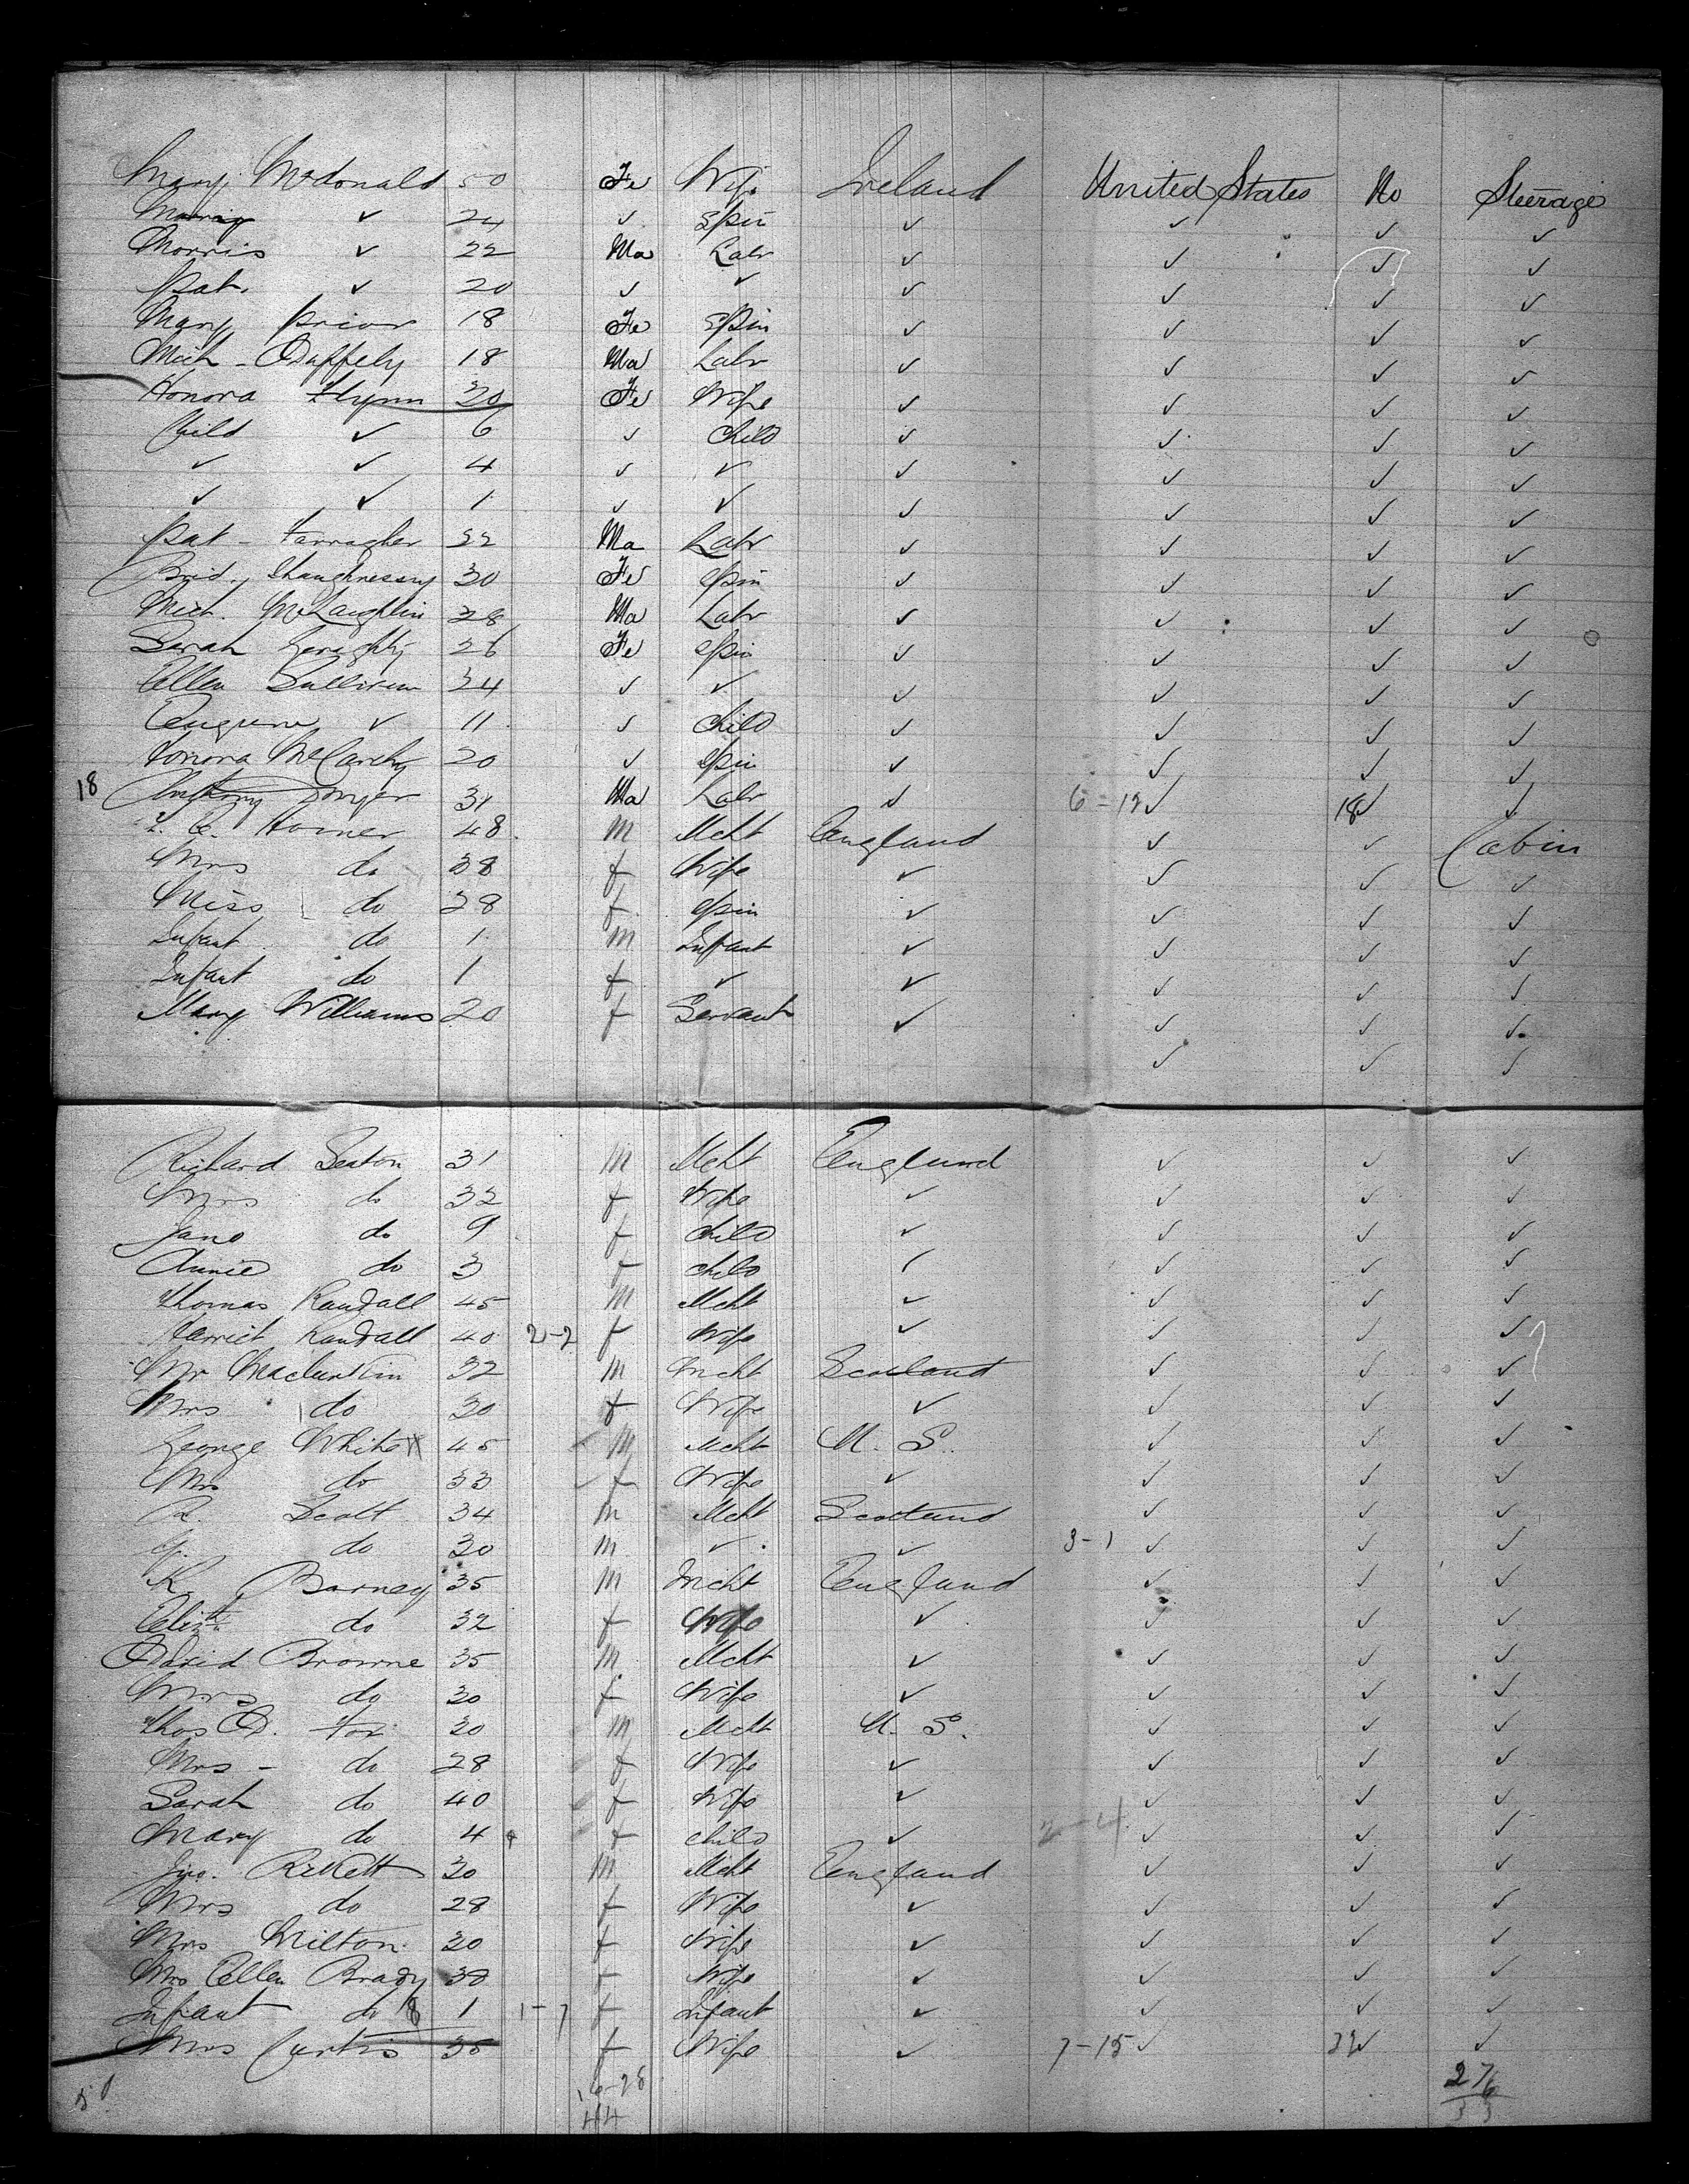 Mary McDonald 50 Fe Wife Ireland United States No Steerage
✓ 24 ✓ Spin ✓ ✓ ✓ ✓
Morris ✓ 22 Ma Labr ✓ ✓ ✓ ✓
Pat. ✓ 20 ✓ ✓ ✓ ✓ ✓ ✓
Mary Prior 18 Fe Spin ✓ ✓ ✓ ✓
Mich - 18 Ma Labr ✓ ✓ ✓ ✓
Honora Flynn 30 Fe Wife ✓ ✓ ✓ ✓
Child ✓ 6 ✓ Child ✓ ✓ ✓ ✓
✓ ✓ 4 ✓ ✓ ✓ ✓ ✓ ✓
✓ ✓ 1 ✓ ✓ ✓ ✓ ✓ ✓
Pat - Farragher 22 Ma Labr ✓ ✓ ✓ ✓
Brid. Shaughnessy 30 Fe Spin ✓ ✓ ✓ ✓
Mich. McLaughlin 28 Ma Labr ✓ ✓ ✓ ✓
Sarah Geraghty 26 Fe Spin ✓ ✓ ✓ ✓
Ellen Sullivan 24 ✓ ✓ ✓ ✓ ✓ ✓
✓ 11 ✓ Child ✓ ✓ ✓ ✓
Honora McCarthy 20 ✓ Spin ✓ ✓ ✓ ✓
18 Anthony Ma Labr ✓ 6-12 ✓ 18 ✓ ✓
Horner 48 m Mcht England ✓ ✓ Cabin
Mrs do 38 f Wife ✓ ✓ ✓ ✓
Miss do 28 f Spin ✓ ✓ ✓ ✓
Infant do 1 m Infant ✓ ✓ ✓ ✓
Infant do 1 f ✓ ✓ ✓ ✓ ✓
Mary Williams 20 f Servant ✓ ✓ ✓ ✓
✓ ✓ ✓
Richard Seaton 31 m Mcht England ✓ ✓ ✓
Mrs do 32 f Wife ✓ ✓ ✓ ✓
Jane do 9 f Child ✓ ✓ ✓ ✓
Annie do 3 f Child ✓ ✓ ✓ ✓
Thomas Randall 45 m Mcht ✓ ✓ ✓ ✓
Harriet Randall 40 2-2 f Wife ✓ ✓ ✓ ✓
Mr 32 m Mcht Scotland ✓ ✓ ✓
Mrs do 30 f Wife ✓ ✓ ✓ ✓
George White 45 m Mcht U. S. ✓ ✓ ✓
Mrs do 33 f Wife ✓ ✓ ✓ ✓
R. Scott 34 m Mcht Scotland ✓ ✓ ✓
G. do 30 m ✓ ✓ 3-1 ✓ ✓ ✓
K. Barney 35 m Mcht England ✓ ✓ ✓
Elizth do 32 f Wife ✓ ✓ ✓ ✓
David Browne 35 m Mcht ✓ ✓ ✓ ✓
Mrs do 30 f Wife ✓ ✓ ✓ ✓
Thos D. Fox 30 m Mcht U. S. ✓ ✓ ✓
Mrs - do 28 f Wife ✓ ✓ ✓ ✓
Sarah do 40 f Wife ✓ ✓ ✓ ✓
Mary do 4 f Child ✓ 2-4 ✓ ✓ ✓
Jno. Rickett 30 m Mcht England ✓ ✓ ✓
Mrs do 28 f Wife ✓ ✓ ✓ ✓
Mrs Milton 30 f Wife ✓ ✓ ✓ ✓
Mrs Ellen Brady 38 f Wife ✓ ✓ ✓ ✓
Infant do 1 f Infant ✓ ✓ ✓ ✓
Mrs Curtis 35 f Wife ✓ 7-15 ✓ 32 ✓ ✓
16-28
44